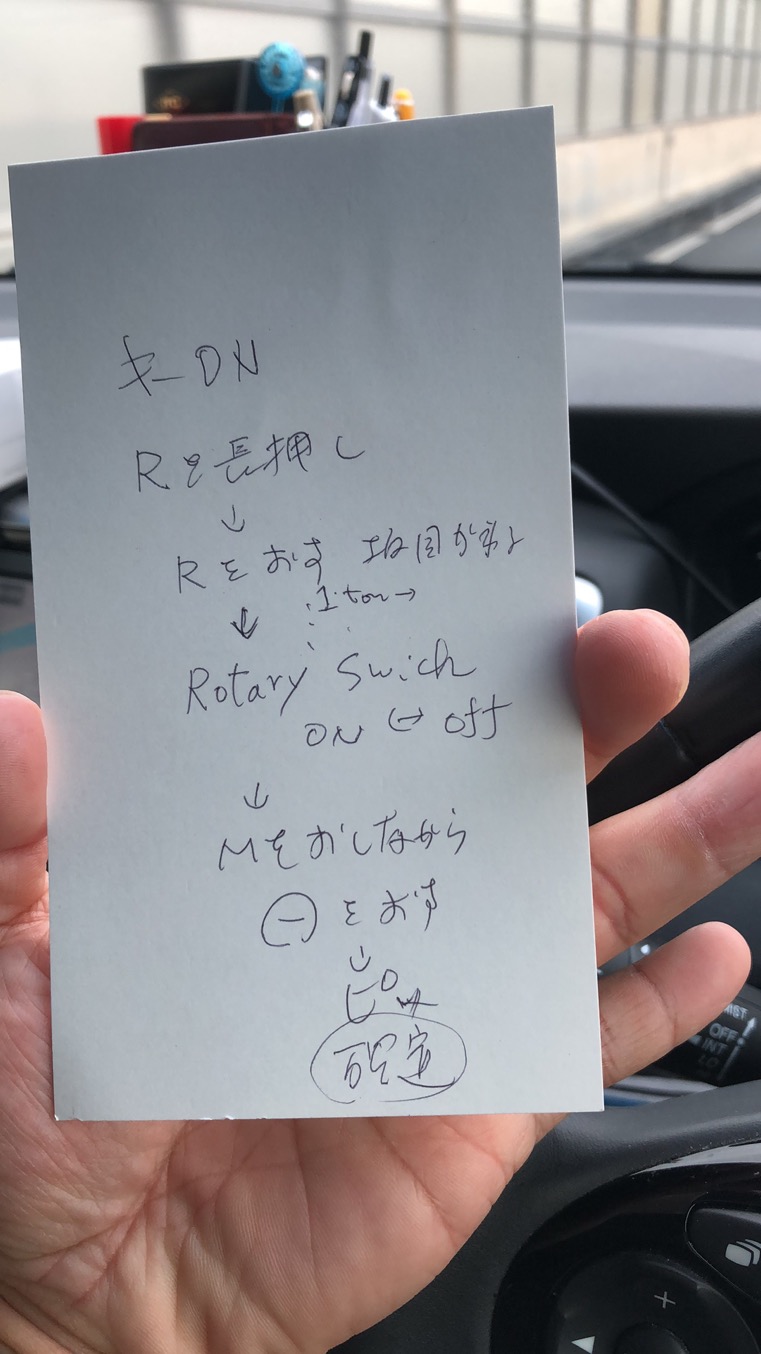 キーON
Rを長押し
↓
Rをおす 坂目が
1 ton→
↓
Rotary Swich
ON ↔ off
↓
Mをおしながら
⊖をおす
↓
ピッ
確定
OFF
INT
LO